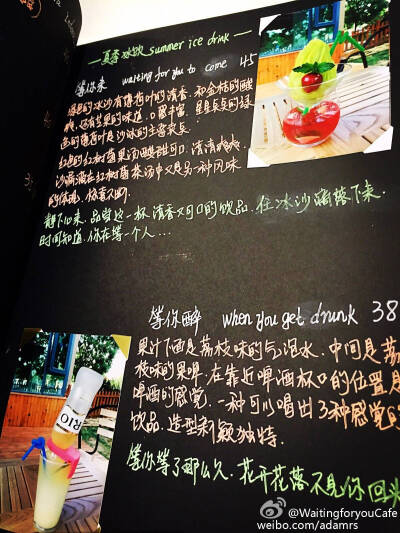 夏季冰饮 summer ice drink
等你来 waiting for you to come 45
绿色的冰沙有薄荷叶的清香,和金桔的酸
酸,还有苹果的味道,口感丰富,星星点点的绿
色的薄荷叶是沙冰的主要亮点.
红色的红树莓果汁酸甜可口,清清爽爽.
沙冰滴在红树莓汤中又是另一种风味
的体现,惊喜不断.
静下心来,品尝这一杯清香又可口的饮品,在冰沙滴落下来,
时间知道,你在等一个人...
等你醉 when you get drunk 38
果汁下面是荔枝味的气泡水,中间是荔
枝味的果啤,在靠近啤酒杯口的位置是
啤酒的感觉.一种可以喝出3种感觉的
饮品.造型新颖独特.
等你等了那么久,花开花落不见你回头
RIO
@WaitingforyouCafe
weibo.com/adamrs